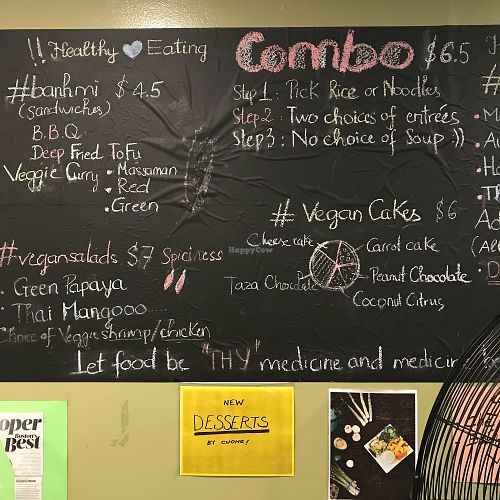 !! Healthy Eating
#banhmi $4.5
(sandwiches)
B.B.Q
Deep Fried Tofu
Veggie Curry • Massaman
• Red
• Green
#vegansalads $7 Spiciness
• Geen Papaya
• Thai Mangooo
Choice of Veggie shrimp/chicken
Combo $6.5
Step 1: Pick Rice or Noodles
Step 2: Two choices of entrées
Step 3: No choice of Soup :))
# Vegan Cakes $6
Cheese cake
Carrot cake
Peanut Chocolate
Taza Chocolate
Coconut Citrus
Let food be "THY" medicine and medicine
HappyCow
oper
Boston's
Best
NEW
DESSERTS
BY CUONG!